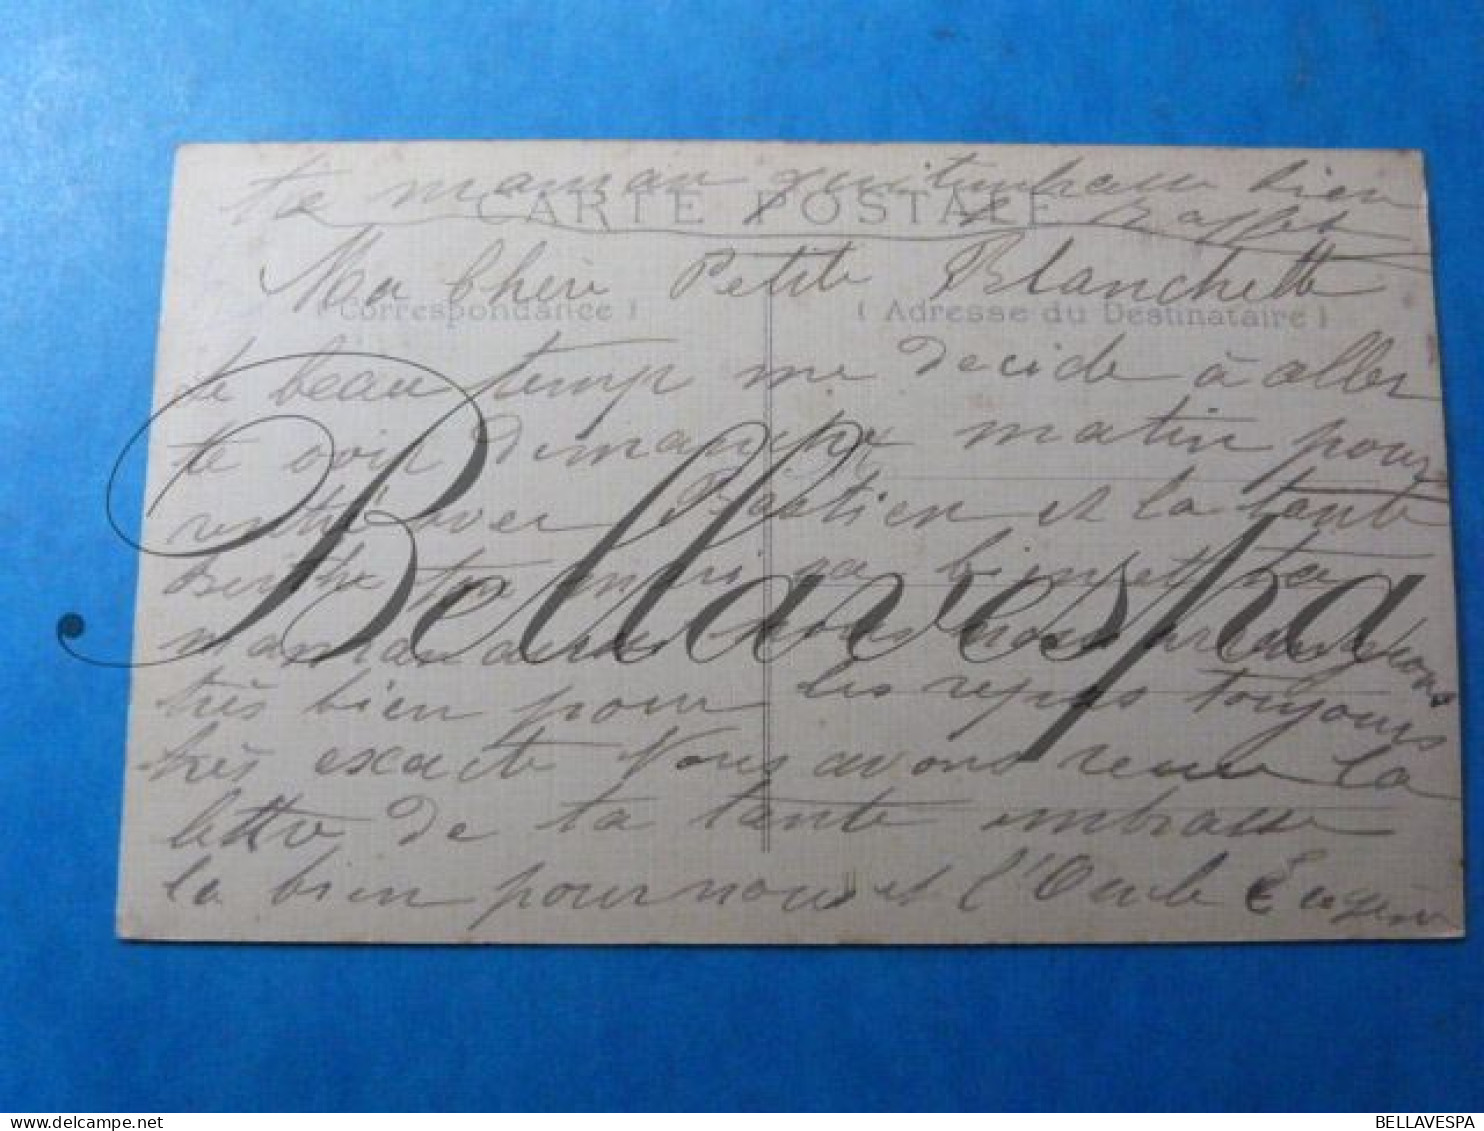 ta maman qui t'embrasse bien
CARTE POSTALE
Ma Chère Petite Blanchette
(Correspondance)
(Adresse du Destinataire)
le beau temp me decide à aller
te voir dimanche matin pour
avec Bastien et la tante
Berthe ton mari va bien et ta
maman aussi nous nous arrangeons
très bien pour les repas toujours
très exacte Nous avons reçue la
lettre de ta tante embrasse
la bien pour nous et l'Oncle Eugène
Bellavespa
BELLAVESPA